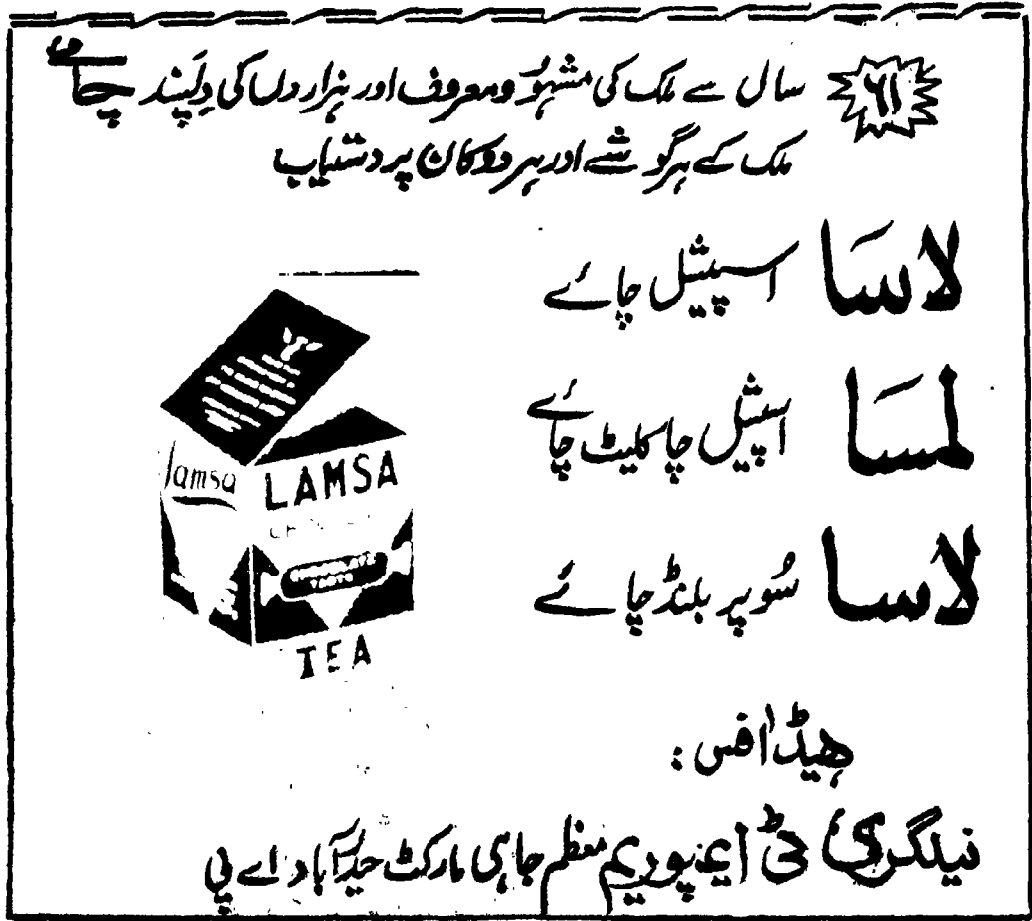 ۶۱ سال سے ملک کی مشہور و معروف اور ہزاروں کی دلپسند چائے
ملک کے ہر گوشے اور ہر دوکان پر دستیاب
لاسا اسپیشل چائے
لمسا اسپیشل چاکلیٹ چائے
لاسا سُوپر بلنڈ چائے
lamsa
LAMSA
TEA
ہیڈ آفس :
نیلگری ٹی ایمپوریم معظم جاہی مارکٹ حیدرآباد اے پی